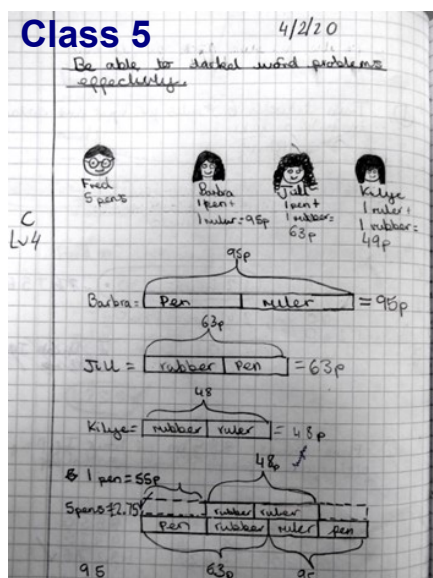 Class 5
4/2/20
Be able to tackel word problems
effectively.
Fred
5 pens
Barbra
1 pen +
1 ruler = 95p
Jill
1 pen +
1 rubber =
63p
Kilye
1 ruler +
1 rubber =
49p
C
Lv4
95p
Barbra = Pen ruler = 95p
63p
Jill = rubber Pen = 63p
48
Kilye = rubber ruler = 48p
48p
1 pen = 55p
rubber ruler
5 pens £2.75
pen rubber ruler pen
95 63p 95